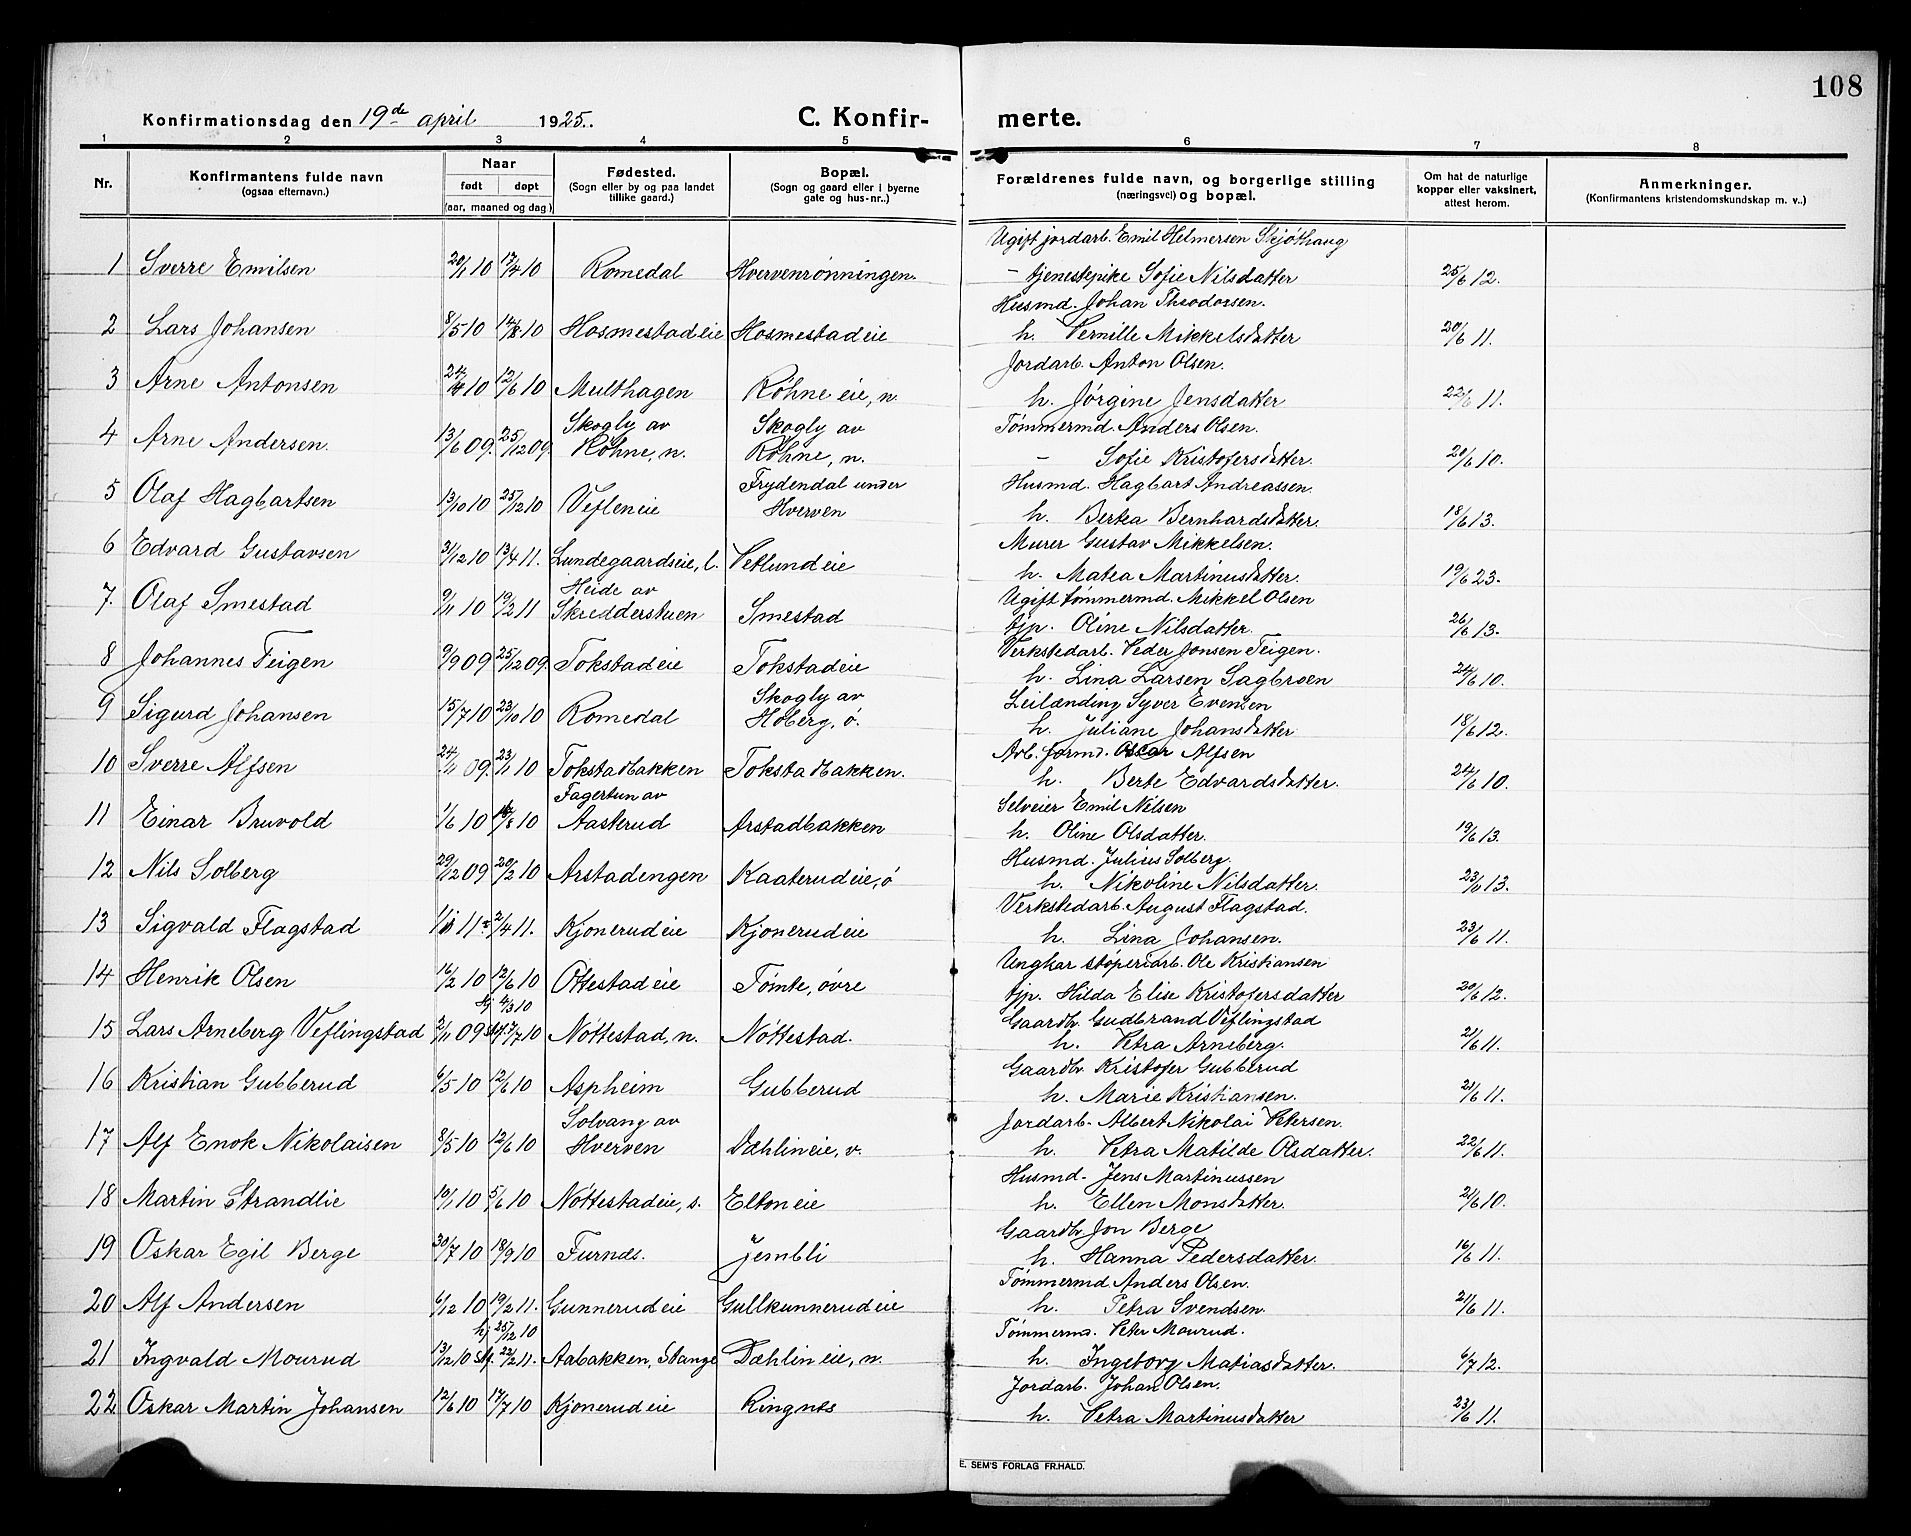 108
Konfirmationsdag den 19de april 1925. C. Konfir- merte.
1 2 3 4 5 6 7 8
Nr. Konfirmantens fulde navn (ogsaa efternavn.) Naar født døpt (aar, maaned og dag) Fødested. (Sogn eller by og paa landet tillike gaard.) Bopæl. (Sogn og gaard eller i byerne gate og hus-nr..) Forældrenes fulde navn, og borgerlige stilling (næringsvei) og bopæl. Om hat de naturlige kopper eller vaksinert, attest herom. Anmerkninger. (Konfirmantens kristendomskundskap m. v..)
Ugift jordarb. Emil Helmersen Skjøthaug
1 Sverre Emilsen 20/1 10 17/4 10 Romedal Hvervenrønningen. - tjenestepike Sofie Nilsdatter 25/6 12.
Husmd. Johan Theodorsen.
2 Lars Johansen 8/5 10 14/8 10 Hosmestadeie Hosmestadeie h. Pernille Mikkelsdatter 20/6 11.
Jordarb. Anton Olsen.
3 Arne Antonsen 24/4 10 12/6 10 Multhagen Røhne eie, n. h. Jørgine Jensdatter 22/6 11.
Skogly av Skogly av Tømmermd. Anders Olsen.
4 Arne Andersen. 13/6 09. 25/12 09. Røhne, n. Røhne, n. - Sofie Kristofersdatter. 20/6 10.
Frydendal under Husmd. Hagbart Andreassen.
5 Olaf Hagbartsen 13/10 10 25/12 10 Vefleneie Hverven h. Bertea Bernhardsdatter. 18/6 13.
Murer Gustav Mikkelsen.
6 Edvard Gustavsen 31/12 10 13/4 11. Lundegaardseie, l. Vetlundeie h. Matea Martinusdatter. 19/6 23.
Heide av Ugift tømmermd. Mikkel Olsen
7. Olaf Smestad 9/11 10 19/2 11 Skredderstuen Smestad tjp. Oline Nilsdatter. 26/6 13.
Verkstedarb. Peder Jonsen Teigen.
8 Johannes Teigen 9/9 09 25/12 09 Tokstadeie Tokstadeie h. Lina Larsen Sagbroen 24/6 10.
Skogly av Leilænding Syver Evensen
9 Sigurd Johansen 15/7 10 23/10 10 Romedal Hoberg, ø. h. Juliane Johansdatter 18/6 12.
Arb. formd. Oscar Alfsen
10 Sverre Alfsen 24/11 09. 23/1 10 Tokstadbakken Tokstadbakken. h. Berte Edvardsdatter. 24/6 10.
Fagertun av Selveier Emil Nilsen
11 Einar Bruvold 1/6 10 /8 10 Aasterud Arstadbakken h. Oline Olsdatter. 19/6 13.
Husmd. Julius Solberg.
12 Nils Solberg 29/12 09 20/2 10 Arstadengen Kaaterudeie, ø h. Nikoline Nilsdatter. 23/11 13.
Verkstedarb. August Flagstad.
13 Sigvald Flagstad 11 2/4 11. Kjonerudeie Kjonerudeie h. Lina Johansen. 23/6 11.
Ungkar støperiarb. Ole Kristiansen
14 Henrik Olsen 16/2 10 12/6 10 Ottestadeie Tømte, øvre tjp. Hilda Elise Kristofersdatter 20/6 12.
hj 4/3 10 Gaardbr. Gudbrand Veflingstad
15 Lars Arneberg Veflingstad 2/11 09 st. 17/7 10 Nøttestad, n. Nøttestad. h. Petra Arneberg. 21/6 11.
Gaardbr. Kristofer Gubberud
16 Kristian Gubberud 6/5 10 12/6 10 Aspheim Gubberud h. Marie Kristiansen. 21/6 11.
Solvang av Jordarb. Albert Nikolai Petersen.
17 Alf Enok Nikolaisen 8/5 10 12/6 10 Hverven Dæhlineie, v. h. Petra Matilde Olsdatter. 22/6 11.
Husmd. Jens Martinussen
18 Martin Strandlie 19/1 10 5/6 10 Nøttestadeie, s. Eltoneie h. Ellen Monsdatter. 21/6 10.
Gaardbr. Jon Berge
19 Oskar Egil Berge 30/7 10 18/9 10 Furnes. Jembli h. Hanna Pedersdatter. 16/6 11.
Tømmermd. Anders Olsen.
20 Alf Andersen 6/12 10 19/2 11. Gunnerudeie Gullkunnerudeie h. Petra Svendsen. 21/6 11.
hj 25/12 10 Tømmermd. Peter Mourud.
21 Ingvald Mourud 13/12 10 st. 22/2 11. Aabakken, Stange Dæhlineie, n. h. Ingeborg Matiasdatter. 6/7 12.
Jordarb. Johan Olsen.
22 Oskar Martin Johansen 12/6 10 17/7 10 Kjonerudeie Ringnes h. Petra Martinusdatter 23/6 11.
E. SEM'S FORLAG FR.HALD.